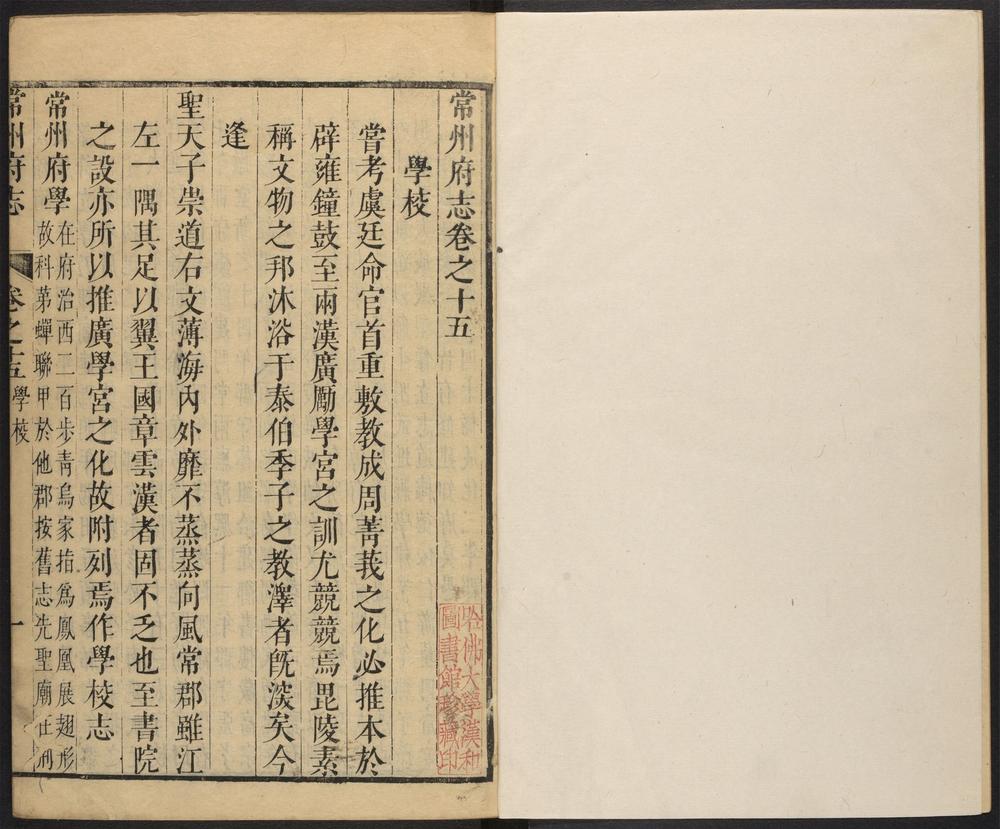 常州府志卷之十五
學校
嘗考虞廷命官首重敷教成周菁莪之化必推本於
辟雍鐘鼓至兩漢廣勵學宮之訓尤競競焉毘陵素
稱文物之邦沐浴于泰伯季子之教澤者旣深矣今
逢
聖天子崇道右文薄海內外靡不蒸蒸向風常郡雖江
左一隅其足以翼王國章雲漢者固不乏也至書院
之設亦所以推廣學宮之化故附列焉作學校志
常州府學
在府治西二百步靑烏家指爲鳳凰展翅形
故科第蟬聯甲於他郡按舊志先聖廟在荊
常州府志
卷之十五
學校
一
哈佛大學漢和
圖書館珍藏印